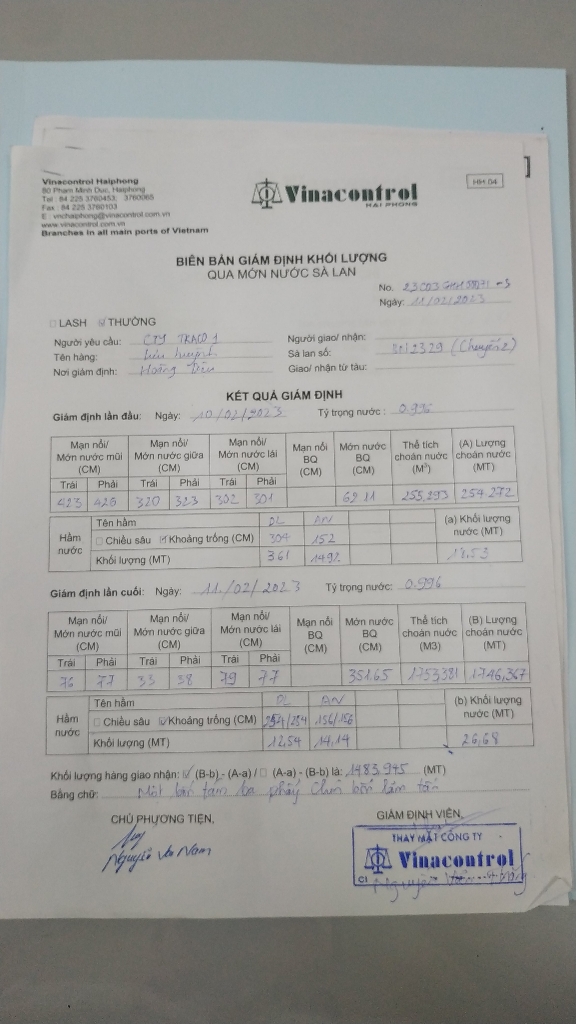 Vinacontrol Haiphong
80 Pham Minh Duc, Haiphong
Tel : 84 225 3760453; 3760065
Fax : 84 225 3760103
E : vnchaiphong@vinacontrol.com.vn
www.vinacontrol.com.vn
Branches in all main ports of Vietnam
Vinacontrol
HAI PHONG
HH 04
BIÊN BẢN GIÁM ĐỊNH KHỐI LƯỢNG
QUA MỚN NƯỚC SÀ LAN
No.
Ngày: 11/02/2023
LASH THƯỜNG
Người yêu cầu: CTY TRACO 1 Người giao/ nhận:
Tên hàng: lưu huỳnh Sà lan số: 2329 (Chuyến 2)
Nơi giám định: Hoàng Diệu Giao/ nhận từ tàu:
KẾT QUẢ GIÁM ĐỊNH
Giám định lần đầu: Ngày: 10/02/2023 Tỷ trọng nước: 0.996
Mạn nổi/ Mớn nước mũi (CM) Mạn nổi/ Mớn nước giữa (CM) Mạn nổi/ Mớn nước lái (CM) Mạn nổi BQ (CM) Mớn nước BQ (CM) Thể tích choán nước (M3) (A) Lượng choán nước (MT)
Trái Phải Trái Phải Trái Phải
423 420 320 323 302 301 62.11 255,293 254.272
Hầm nước Tên hầm DL AN (a) Khối lượng nước (MT)
Chiều sâu Khoảng trống (CM) 304 152
Khối lượng (MT) 3.61 14.92 18,53
Giám định lần cuối: Ngày: 11/02/2023 Tỷ trọng nước: 0.996
Mạn nổi/ Mớn nước mũi (CM) Mạn nổi/ Mớn nước giữa (CM) Mạn nổi/ Mớn nước lái (CM) Mạn nổi BQ (CM) Mớn nước BQ (CM) Thể tích choán nước (M3) (B) Lượng choán nước (MT)
Trái Phải Trái Phải Trái Phải
76 77 33 38 79 77 351.65 1753,381 1746,367
Hầm nước Tên hầm DL AN (b) Khối lượng nước (MT)
Chiều sâu Khoảng trống (CM) 254/254 156/156
Khối lượng (MT) 12,54 14,14 26,68
Khối lượng hàng giao nhận: (B-b) - (A-a) / (A-a) - (B-b) là: 1483,945 (MT)
Bằng chữ: Một bốn tám ba phẩy chín bốn lăm tấn
CHỦ PHƯƠNG TIỆN, GIÁM ĐỊNH VIÊN,
THAY MẶT CÔNG TY
Vinacontrol
C1
Nguyễn Nam
Nguyễn